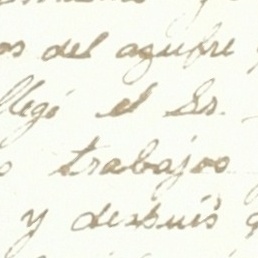 del azufre y
llegó el Sr.
trabajos
y después